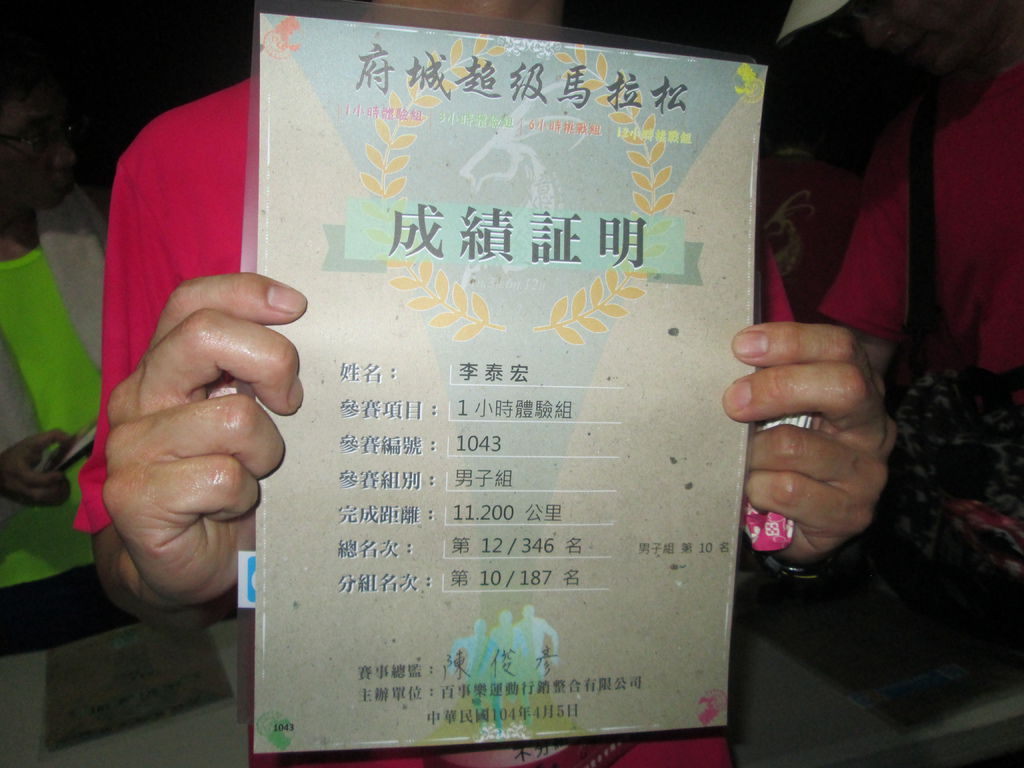 府城超級馬拉松
1小時體驗組 3小時體驗組 6小時挑戰組 12小時挑戰組
成績証明
姓名： 李泰宏
參賽項目： 1 小時體驗組
參賽編號： 1043
參賽組別： 男子組
完成距離： 11.200 公里
總名次： 第 12 / 346 名 男子組 第 10 名
分組名次： 第 10 / 187 名
賽事總監：陳俊彥
主辦單位：百事樂運動行銷整合有限公司
中華民國104年4月5日
1043